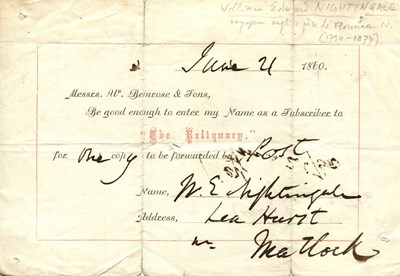 William Edward NIGHTINGALE
voyageur angl., père de Florence N.
(1794-1874)
June 21 1860.
Messrs. Wm. Bemrose & Sons,
Be good enough to enter my Name as a Subscriber to
"The Reliquary,"
for One copy to be forwarded by Post
Name, W. E. Nightingale
Address, Lea Hurst
nr. Matlock